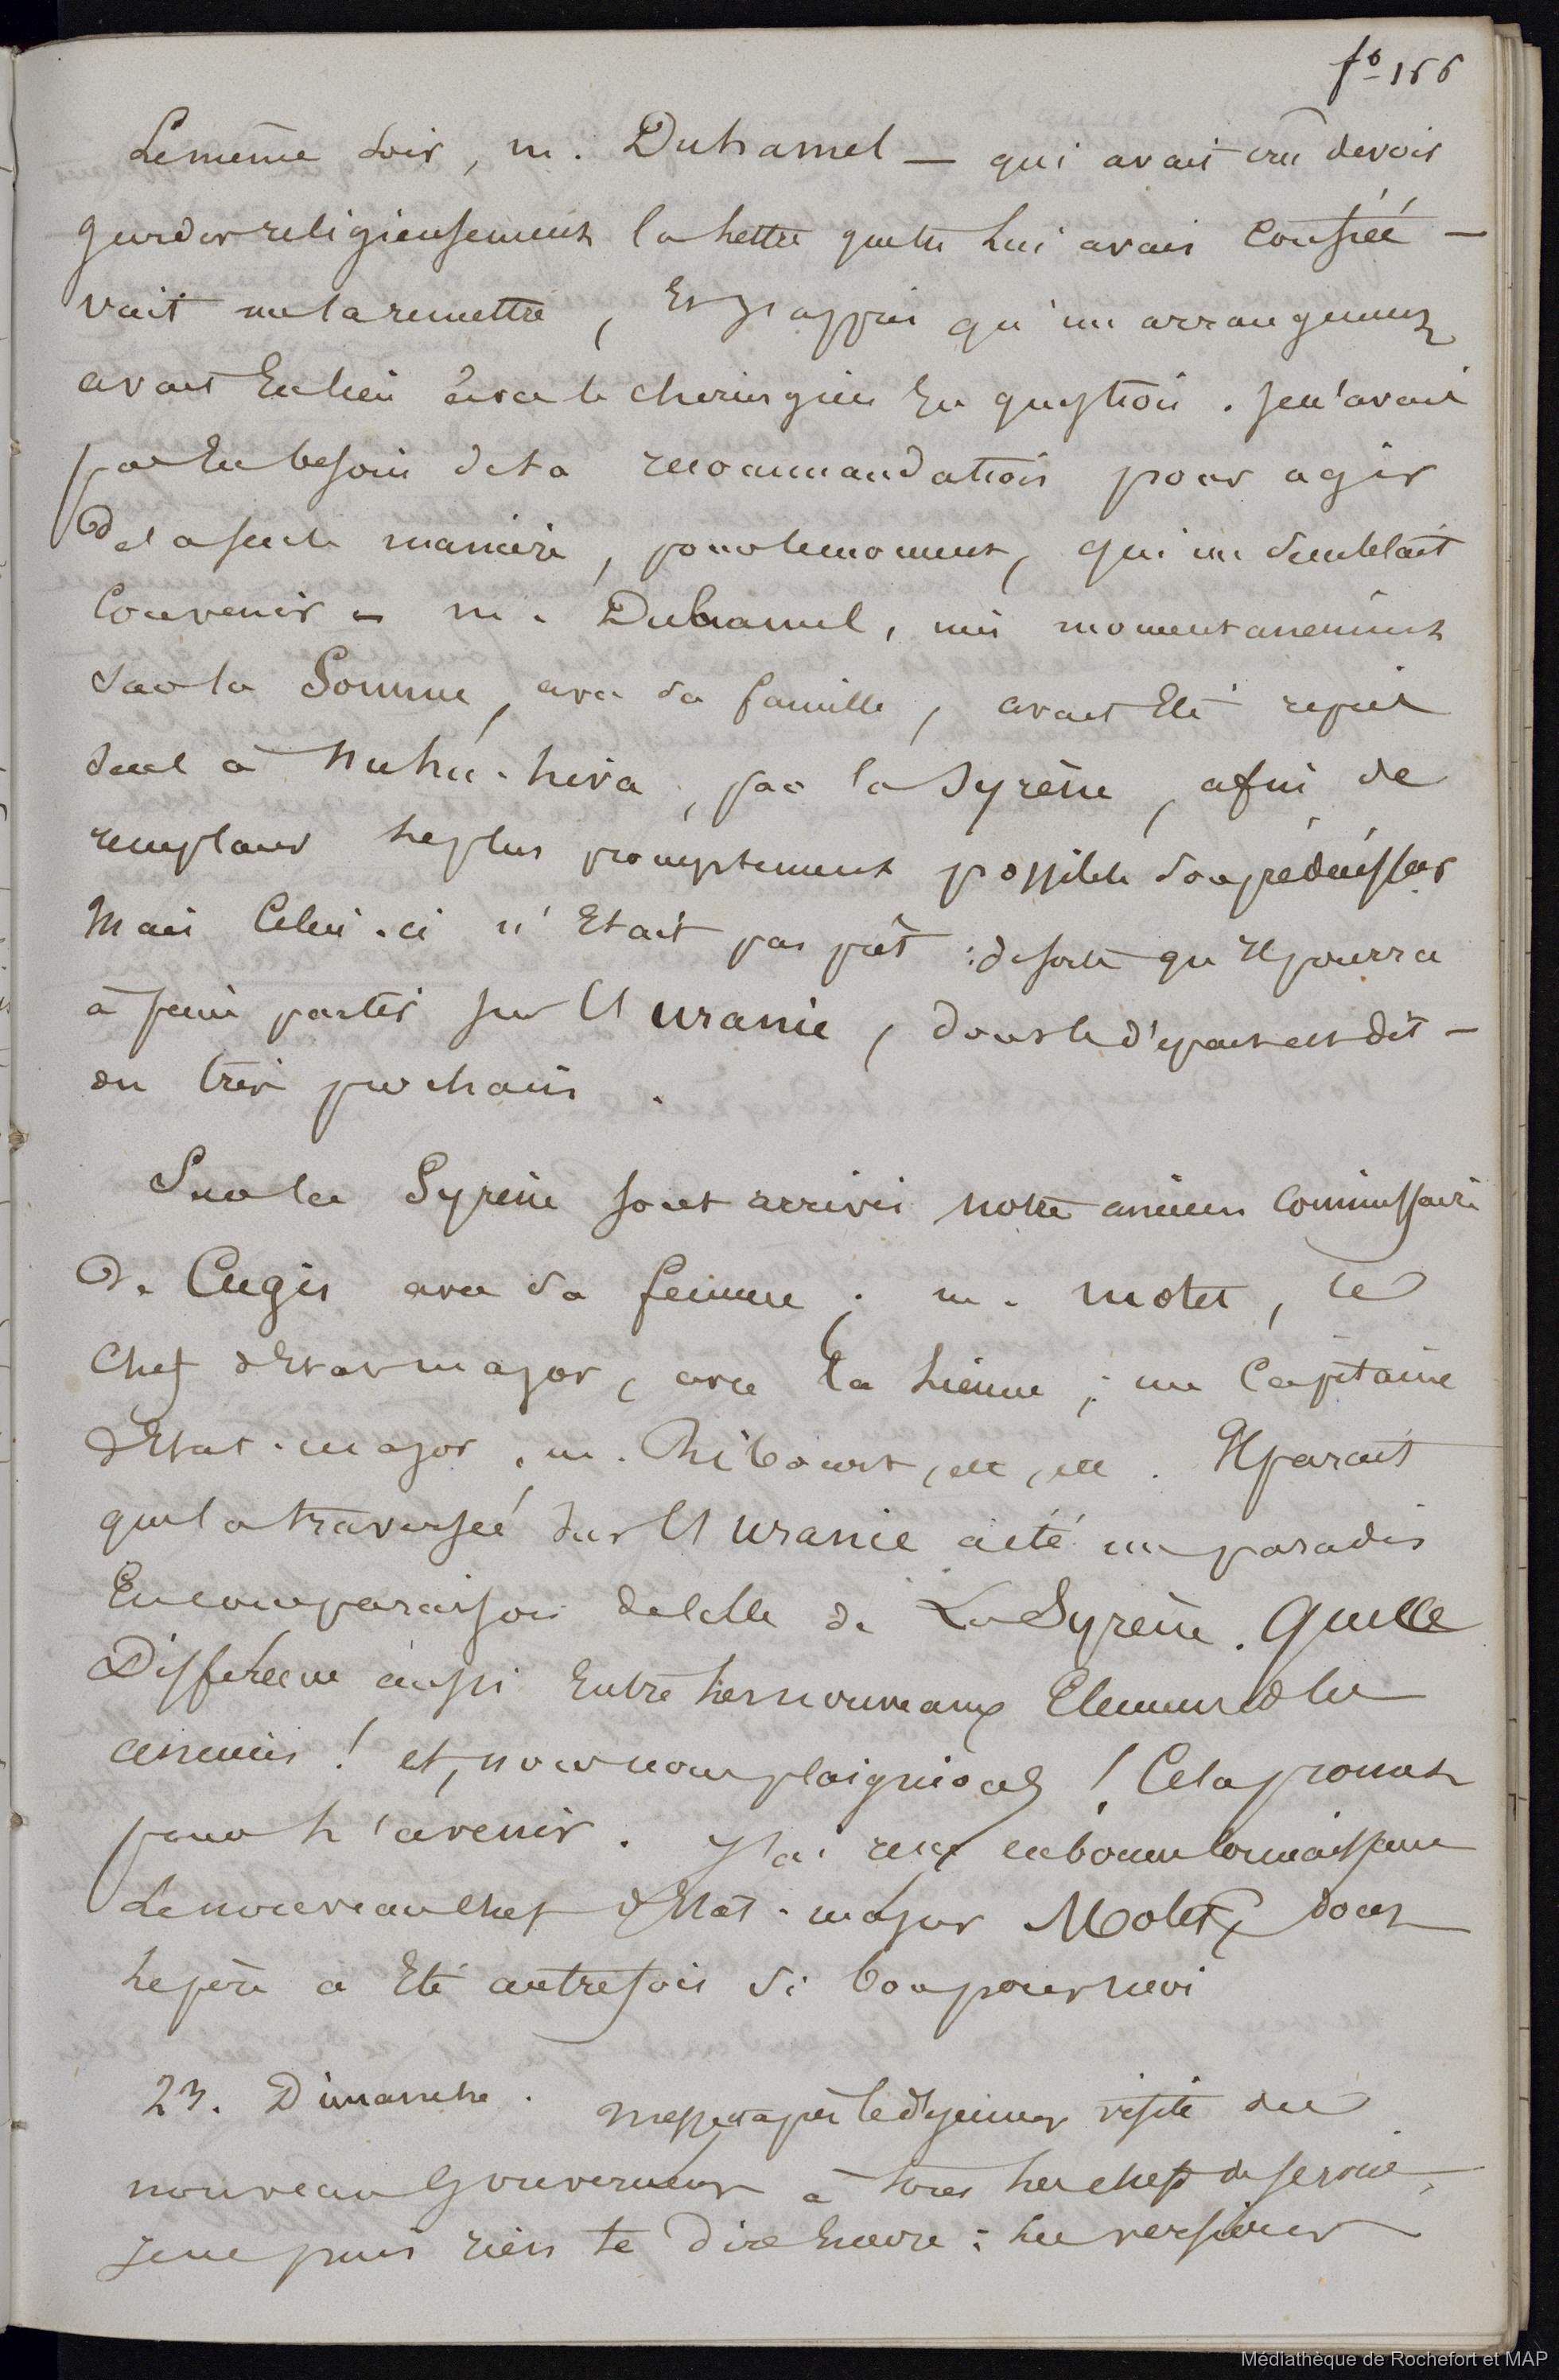 fo 166
Le même soir, m. Duhamel — qui avait cru devoir
garder religieusement la lettre que tu lui avais confiée —
vint me la remettre, Et j'appris qu'un arrangement
avait Eu lieu avec le chirurgien En question. je n'avais
pas Eu besoin de ta recommandation pour agir
de la seule manière, pour le moment, qui me semblait
Convenir - m. Duhamel, mis momentanément
sur la Somme, avec sa famille, avait Eté repris
seul à Nuhu-hiva, par la Syrène, afin de
remplacer le plus promptement possible son prédécesseur
Mais Celui-ci n'Etait pas prêt : de sorte qu'Il pourra
à peine partir sur l'Uranie, dont le départ est dit-
on très prochain.
Sur la Syrène sont arrivés notre ancien Commissaire
De Cugis avec sa femme ; m. Motet, le
Chef d'Etat major, avec la sienne ; un Capitaine
d'Etat-major, m. Ribourt, etc, etc. Il parait
que la traversée sur l'Uranie a été un paradis
En comparaison de celle de La Syrène. Quelle
Différence aussi Entre les nouveaux Elements & les
anciens ! et, nous nous plaignions ! Cela promet
pour l'avenir. J'ai reçu en bonne connaissance
Le nouveau chef d'Etat-major Motet, dont
le père a Eté autrefois si bon pour moi
23. Dimanche. Messe après le déjeuner visite du
nouveau Gouverneur à tous les chefs de service,
je ne puis rien te dire Encore : les versions
Médiathèque de Rochefort et MAP